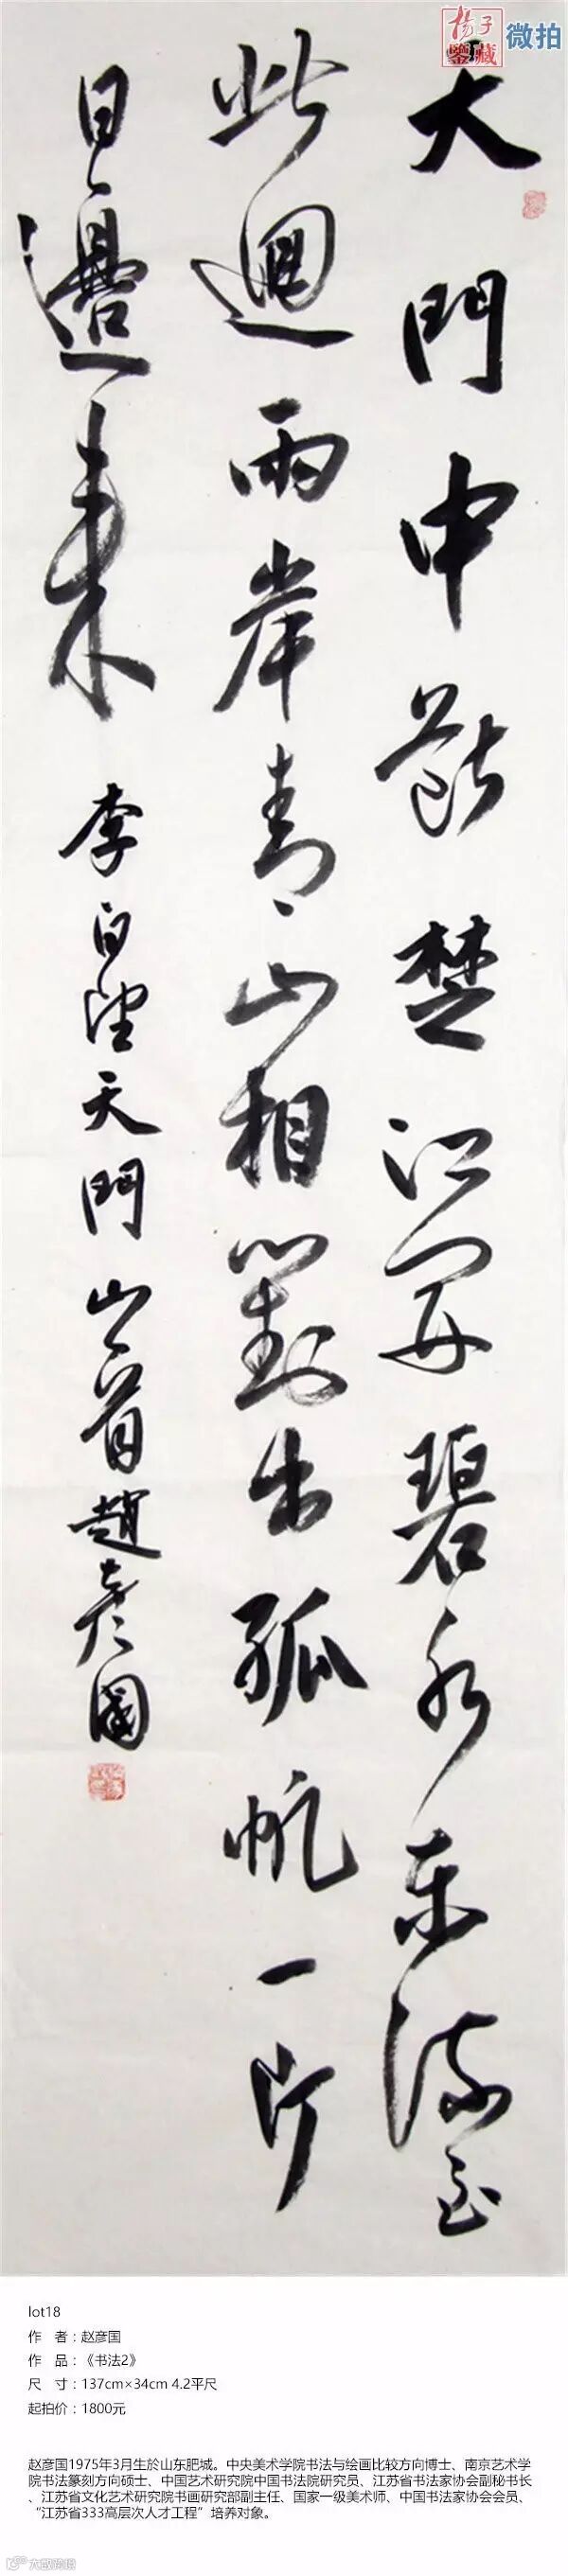 揚子
鑒藏
微拍
天門中斷楚江開碧水東流至
此迴兩岸青山相對出孤帆一片
日邊來 李白望天門山一首 趙彥國
lot18
作 者：赵彦国
作 品：《书法2》
尺 寸：137cm×34cm 4.2平尺
起拍价：1800元
赵彦国1975年3月生於山东肥城。中央美术学院书法与绘画比较方向博士、南京艺术学
院书法篆刻方向硕士、中国艺术研究院中国书法院研究员、江苏省书法家协会副秘书长
、江苏省文化艺术研究院书画研究部副主任、国家一级美术师、中国书法家协会会员、
“江苏省333高层次人才工程”培养对象。